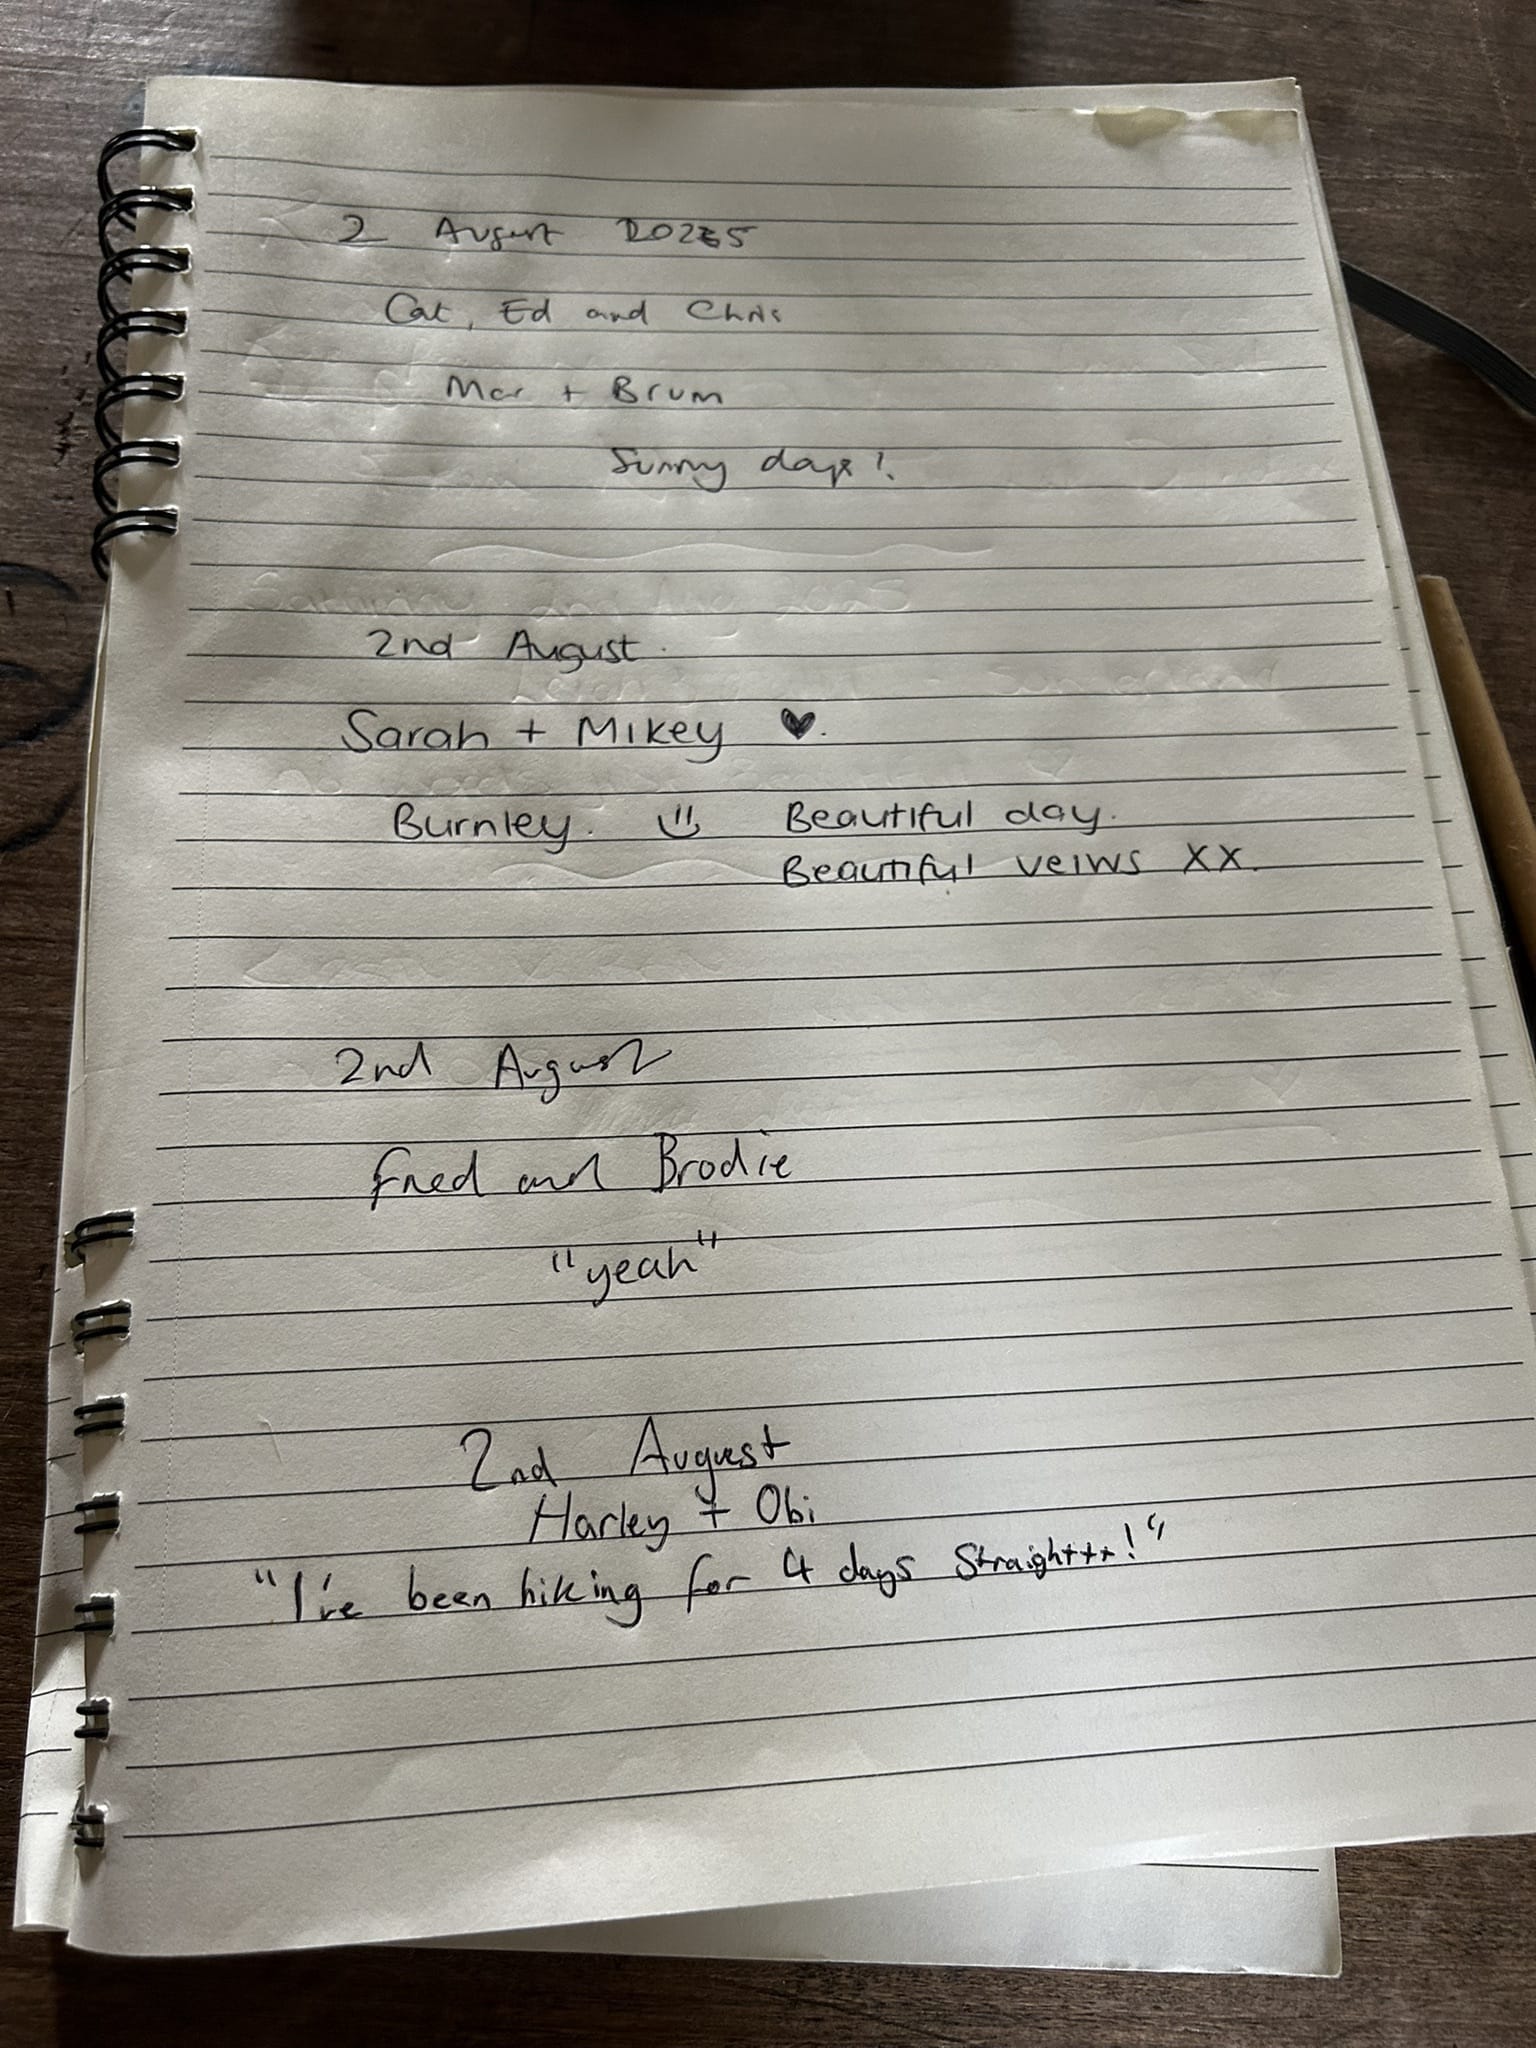 2 August 2025
Cat, Ed and Chris
Mar + Brum
Sunny days!
2nd August.
Sarah + Mikey ♥.
Burnley. Beautiful day.
Beautiful veiws XX.
2nd August
Fred and Brodie
"yeah"
2nd August
Harley + Obi
"I've been hiking for 4 days straighttt!"